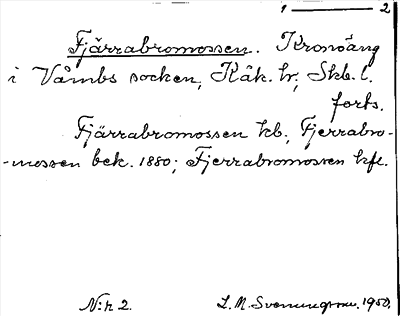 1 — 2
Fjärrabromossen. Kronöäng
i Våmbs socken, Kåk. hr, Skb. l.
forts.
Fjärrabromossen kb, Fjerrabro-
-mossen bek. 1880; Fjerrabromossen hfl.
N:r 2. L. M. Svenungsson. 1950.